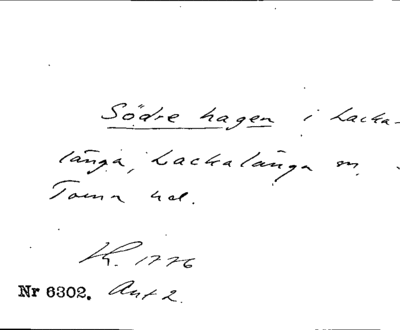 Södre hagen i Lacka-
länga, Lackalänga sn,
Torna hd.
Kt. 1776
Nr 6302. Akt 2.